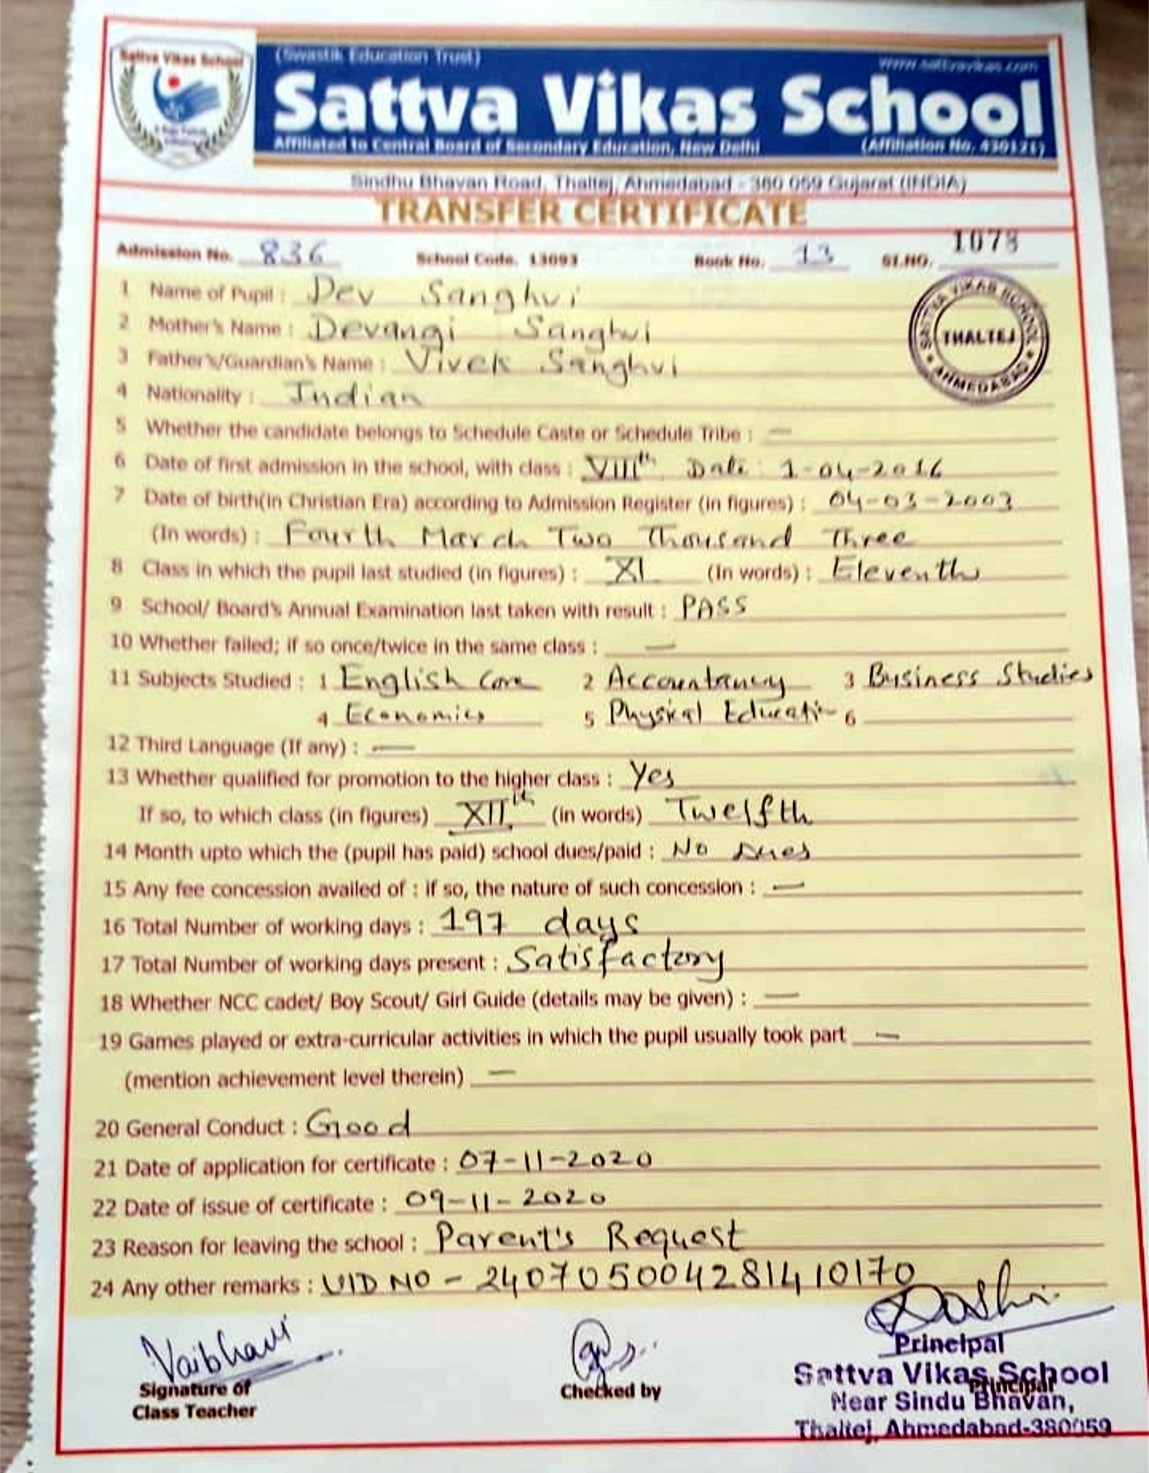 Sattva Vikas School
(Swastik Education Trust) www.sattvavikas.com
Sattva Vikas School
Affiliated to Central Board of Secondary Education, New Delhi (Affiliation No. 430121)
Sindhu Bhavan Road, Thaltej, Ahmedabad - 380 059 Gujarat (INDIA)
TRANSFER CERTIFICATE
Admission No. 836 School Code. 13093 Book No. 13 Sl.NO. 1078
SATTVA VIKAS SCHOOL THALTEJ AHMEDABAD
1 Name of Pupil : Dev Sanghvi
2 Mother's Name : Devangi Sanghvi
3 Father's/Guardian's Name : Vivek Sanghvi
4 Nationality : Indian
5 Whether the candidate belongs to Schedule Caste or Schedule Tribe : —
6 Date of first admission in the school, with class : VIIIth Date : 1-04-2016
7 Date of birth(in Christian Era) according to Admission Register (in figures) : 04-03-2003
(In words) : Fourth March Two Thousand Three
8 Class in which the pupil last studied (in figures) : XI (In words) : Eleventh
9 School/ Board's Annual Examination last taken with result : PASS
10 Whether failed; if so once/twice in the same class : —
11 Subjects Studied : 1 English Core 2 Accountancy 3 Business Studies
4 Economics 5 Physical Education 6
12 Third Language (If any) : —
13 Whether qualified for promotion to the higher class : Yes
If so, to which class (in figures) XIIth (in words) Twelfth
14 Month upto which the (pupil has paid) school dues/paid : No Dues
15 Any fee concession availed of : if so, the nature of such concession : —
16 Total Number of working days : 197 days
17 Total Number of working days present : Satisfactory
18 Whether NCC cadet/ Boy Scout/ Girl Guide (details may be given) : —
19 Games played or extra-curricular activities in which the pupil usually took part —
(mention achievement level therein) —
20 General Conduct : Good
21 Date of application for certificate : 07-11-2020
22 Date of issue of certificate : 09-11-2020
23 Reason for leaving the school : Parent's Request
24 Any other remarks : UID NO - 240705004281410170
Vaibhavi
Signature of
Class Teacher
Checked by
Principal
Principal
Sattva Vikas School
Near Sindu Bhavan,
Thaltej, Ahmedabad-380059